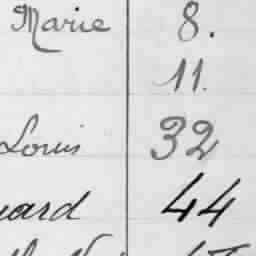 Marie 8.
11.
Louis 32
uard 44